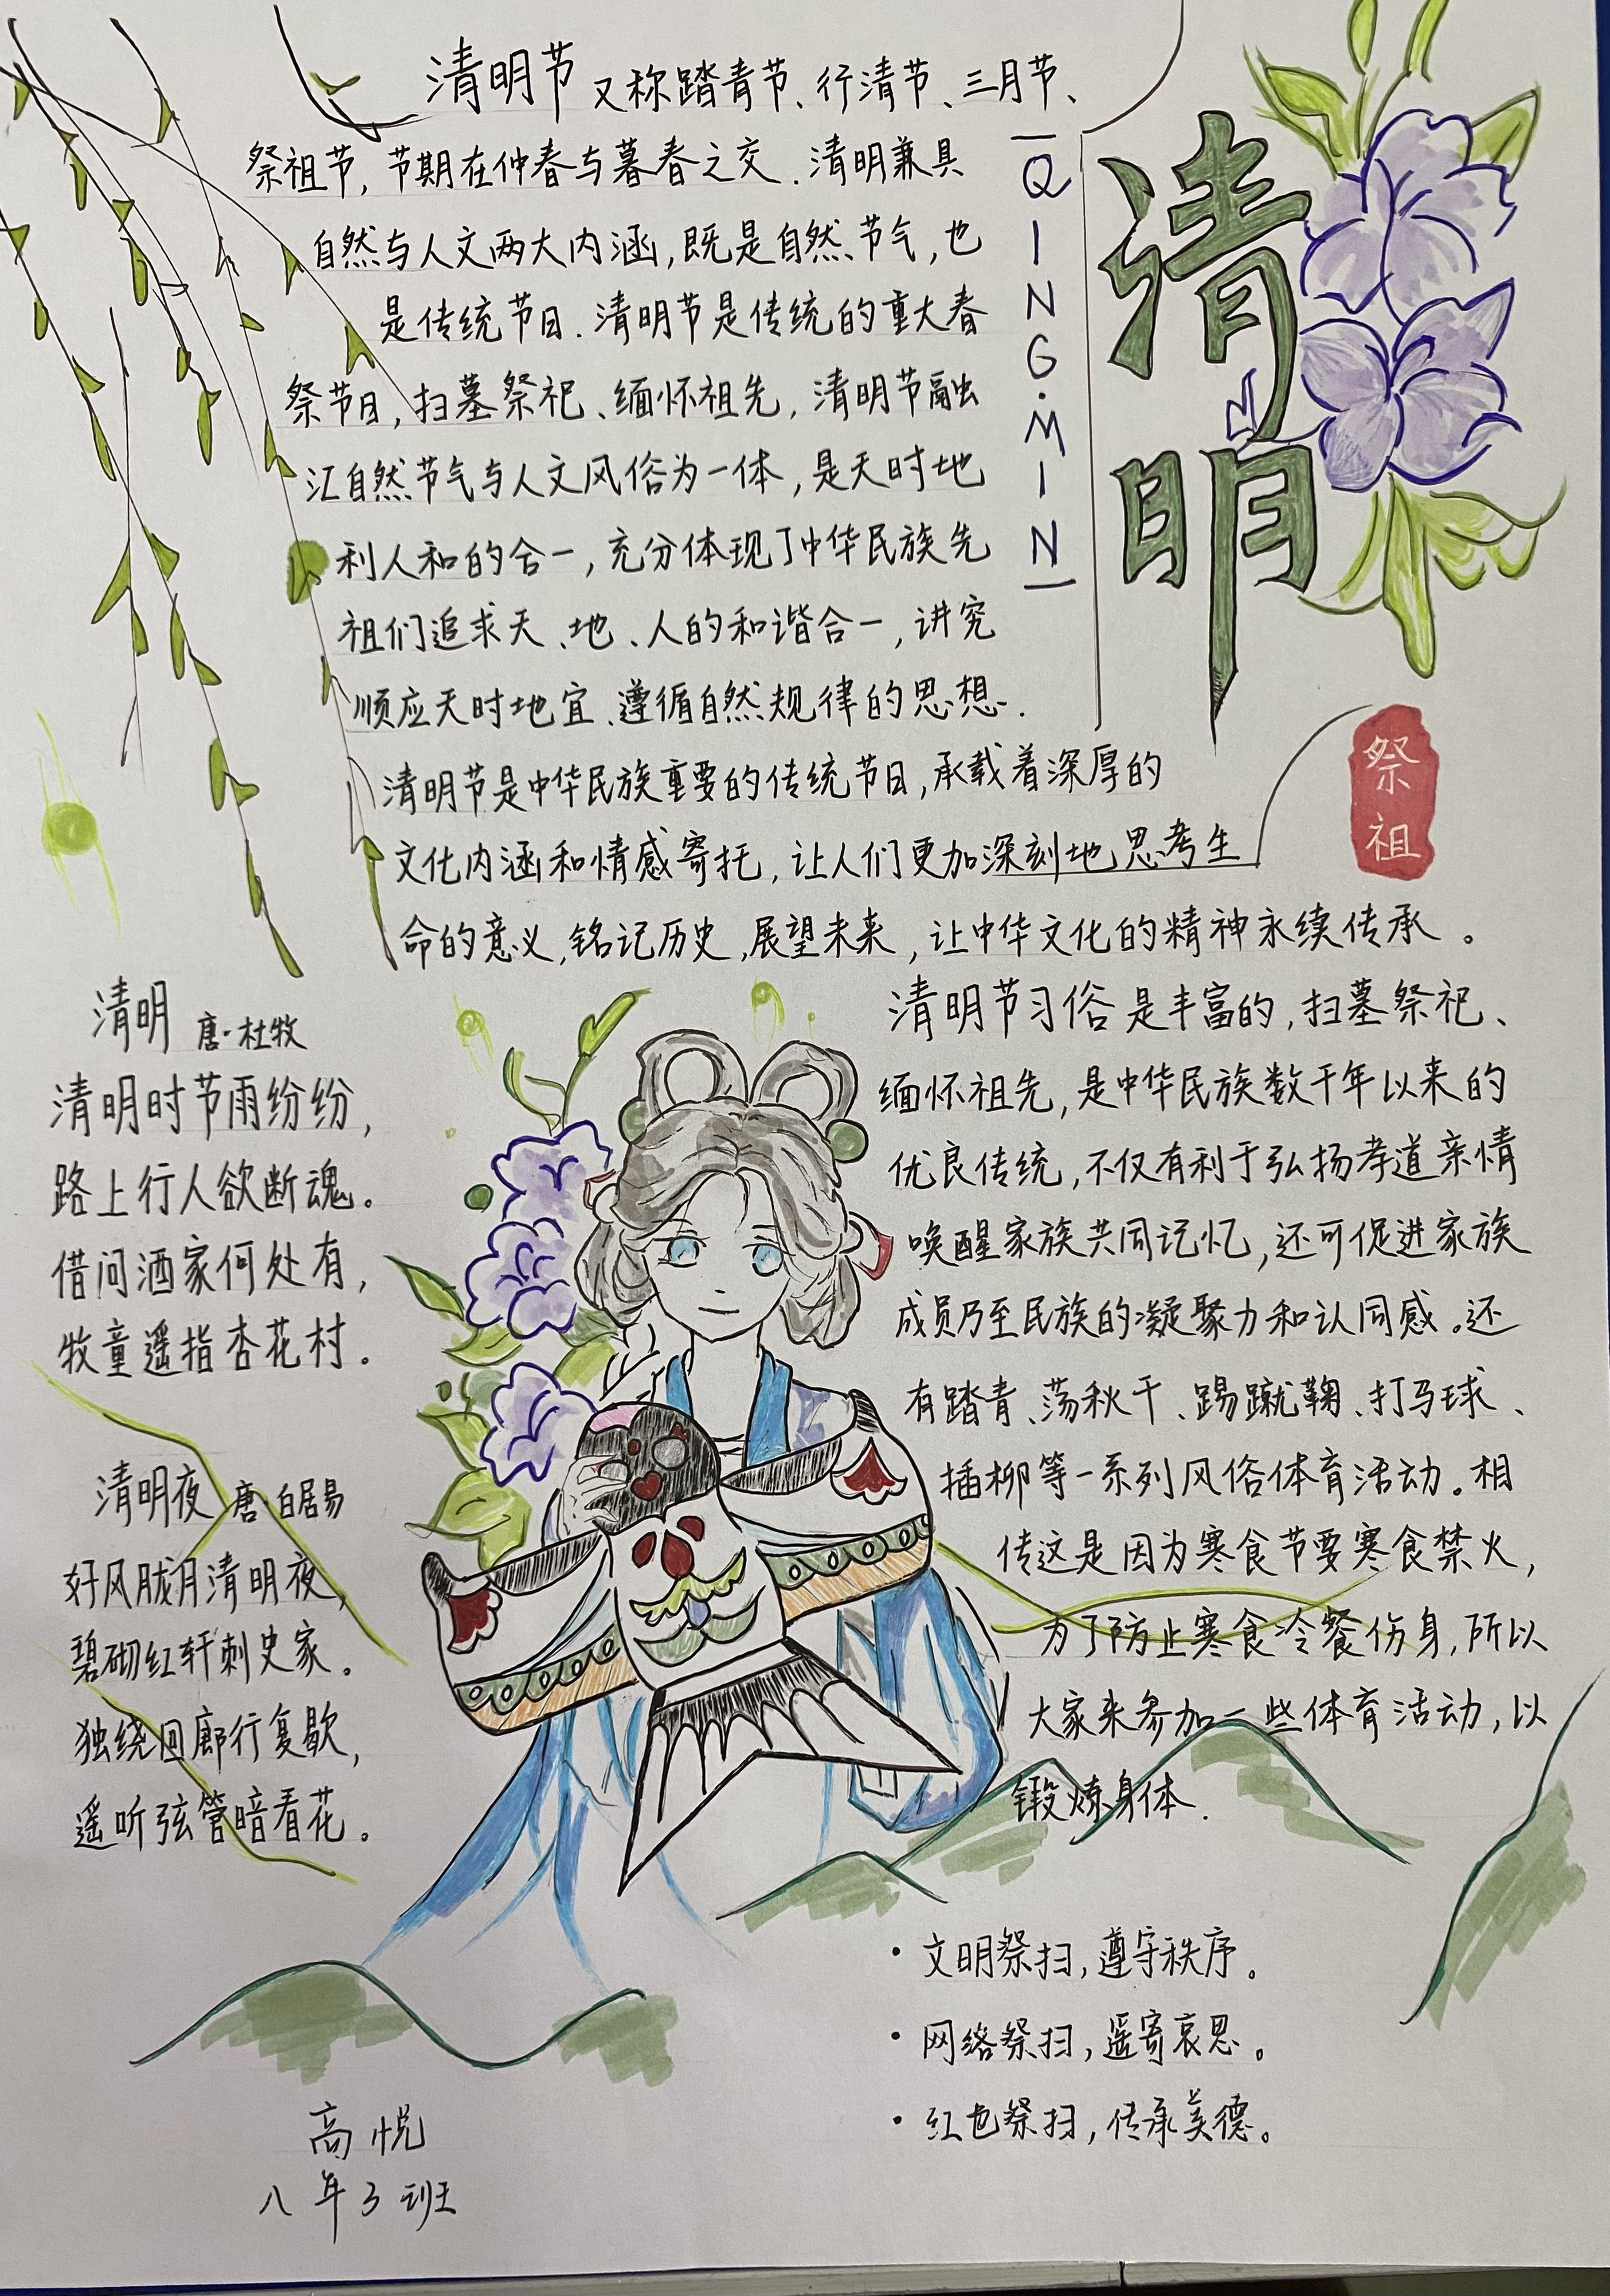 清明
QING·MING
祭祖
清明节又称踏青节、行清节、三月节、
祭祖节,节期在仲春与暮春之交.清明兼具
自然与人文两大内涵,既是自然节气,也
是传统节日.清明节是传统的重大春
祭节日,扫墓祭祀、缅怀祖先,清明节融
汇自然节气与人文风俗为一体,是天时地
利人和的合一,充分体现了中华民族先
祖们追求天、地、人的和谐合一,讲究
顺应天时地宜、遵循自然规律的思想.
清明节是中华民族重要的传统节日,承载着深厚的
文化内涵和情感寄托,让人们更加深刻地思考生
命的意义,铭记历史,展望未来,让中华文化的精神永续传承。
清明 唐·杜牧
清明时节雨纷纷,
路上行人欲断魂。
借问酒家何处有,
牧童遥指杏花村。
清明夜 唐·白居易
好风胧月清明夜,
碧砌红轩刺史家。
独绕回廊行复歇,
遥听弦管暗看花。
清明节习俗是丰富的,扫墓祭祀、
缅怀祖先,是中华民族数千年以来的
优良传统,不仅有利于弘扬孝道亲情
唤醒家族共同记忆,还可促进家族
成员乃至民族的凝聚力和认同感。还
有踏青、荡秋千、踢蹴鞠、打马球、
插柳等一系列风俗体育活动。相
传这是因为寒食节要寒食禁火,
为了防止寒食冷餐伤身,所以
大家来参加一些体育活动,以
锻炼身体.
·文明祭扫,遵守秩序。
·网络祭扫,遥寄哀思。
·红色祭扫,传承美德。
高悦
八年3班